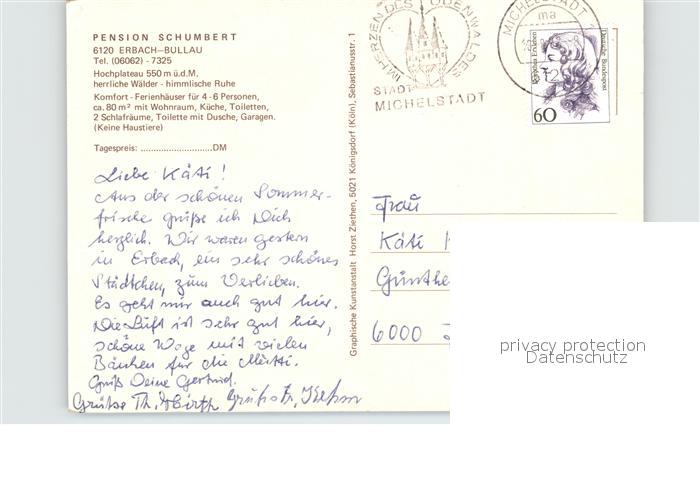 PENSION SCHUMBERT
6120 ERBACH–BULLAU
Tel. (06062) - 7325
Hochplateau 550 m ü.d.M,
herrliche Wälder - himmlische Ruhe
Komfort - Ferienhäuser für 4 - 6 Personen,
ca. 80 m² mit Wohnraum, Küche, Toiletten,
2 Schlafräume, Toilette mit Dusche, Garagen.
(Keine Haustiere)
Tagespreis: ...........................DM
Liebe Käti!
Aus der schönen Sommer-
frische grüße ich Dich
herzlich. Wir waren gestern
in Erbach, ein sehr schönes
Städtchen, zum Verlieben.
Es geht mir auch gut hier.
Die Luft ist sehr gut hier,
schöne Wege mit vielen
Bänken für die Mutti.
Gruß Deine Gertrud.
Grüße Th.
Graphische Kunstanstalt Horst Ziethen, 5021 Königsdorf (Köln), Sebastianusstr. 1
IM HERZEN DES ODENWALDES
STADT
MICHELSTADT
MICHELSTADT
ma
Deutsche Bundespost
60
Frau
Käti
Günthe
6000
privacy protection
Datenschutz